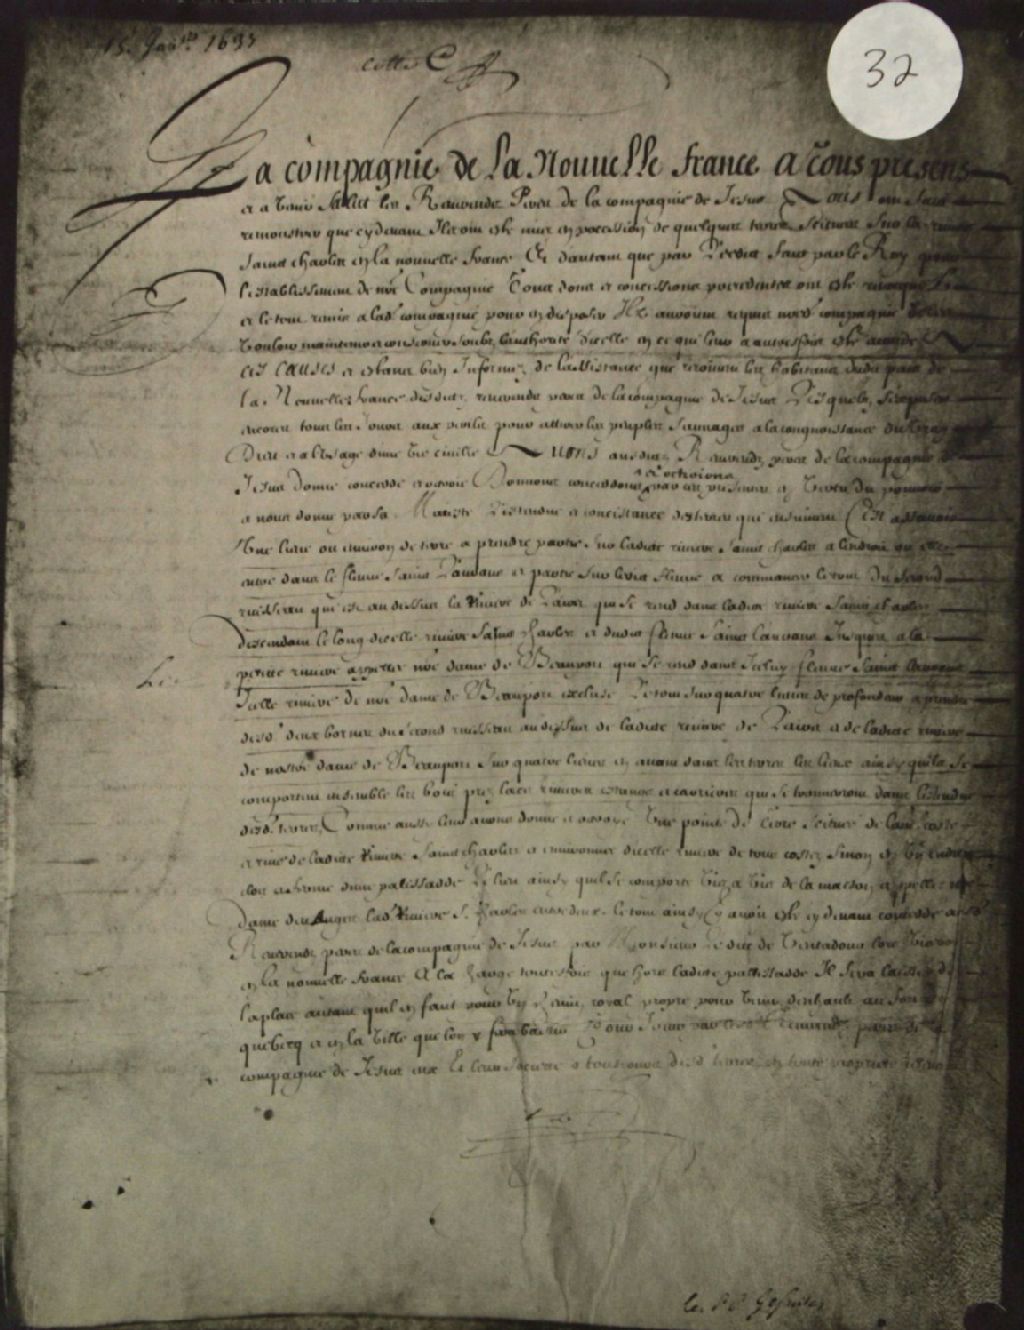 15. Janv. 1637
cotte C
32
La compagnie de La Nouuelle france a tous presens
et a venir Salut les Reuerendz Peres de la compagnie de Jesus Nous ont faict
remonstrer que cy deuant Ilz ont esté mis en possession de quelques terres scituees sur la riuiere
Sainct charles en la nouuelle france Et d'autant que par l'Edict faict par le Roy pour
l'establissement de nre Compagnie Tous dons et concessions precedentes ont esté reuocquez
et le tout remis a lad. compagnie pour en disposer Ilz auroient requis nred. compagnie de les
Vouloir maintenir et conseruer soubz l'authorité d'icelle en ce qui leur a autresfois esté accordé A
CES CAUSES et estant bien Informez de l'assistance que recoiuent les habitans dudit pais de
la Nouuelle france desditz reuerendz peres de la compagnie de Jesus Lesquelz s'exposent
encores tous les Jours aux perilz pour attirer les peuples Sauuages a la congnoissance du vray
Dieu et a l'vsage d'une vie ciuille NOUS ausditz Reuerendz peres de la compagnie de
Jesus donné concedé et octroié Donnons concedons et octroions par ces presentes en vertu du pouuoir
a nous donné par sa Majesté l'estendue et consistance des terres qui ensuiuent C'est assauoir
Vne lieue ou enuiron de terre a prendre partie sur ladite riuiere Sainct charles a l'endroit ou elle
entre dans le fleuue Sainct Laurens et partie sur ledit fleuue a commancer le tout du second
ruisseau qui est au dessus la Riuiere de Lairet qui se rend dans ladite riuiere Sainct charles
descendant le long d'icelle riuiere Sainct charles et dudit fleuue Sainct Laurens Jusques a la
petite riuiere appellee nre dame de Beauport qui se rend dans Icelluy fleuue Sainct Laurens
Icelle riuiere de nre dame de Beauport excluse Le tout sur quatre lieues de profondeur a prendre
desd. deux bornes du second ruisseau au dessus de ladite riuiere de Lairet et de ladite riuiere
de nostre dame de Beauport sur quatre lieues en auant dans les terres les lieux ainsy qu'ilz se
comportent ensemble les bois prez lacs riuieres estangs et carrieres qui se trouueront dans l'estendue
desd. terres Comme aussi leur auons donné et octroyé Vne pointe de terre scituée de l'autre costé
et riue de ladite Riuiere Sainct charles et enuironnée d'icelle riuiere de tous costez sinon en vn endroit
clos et fermé d'une palissadde Le lieu ainsy qu'il se comporte viz a viz de la maison appellée nre
dame des Anges lad. Riuiere St. Charles entre deux le tout ainsy qu'il auoit esté cy deuant concedé ausd.
Reuerendz peres de la compagnie de Jesus par Monsieur Le duc de Ventadour lors Viceroy
en la nouuelle france A la charge toutesfois que hors ladite pallissadde Il sera laissé de
la place autant qu'il en faut pour vn chemin royal propre pour venir d'en hault au fort de
quebecq et en la Ville que l'on y fera bastir Pour Jouir par lesd. Reuerendz peres de la
compagnie de Jesus eux Et leurs successeurs a tousiours desd. terres en toute proprieté
les P.P. Jesuites